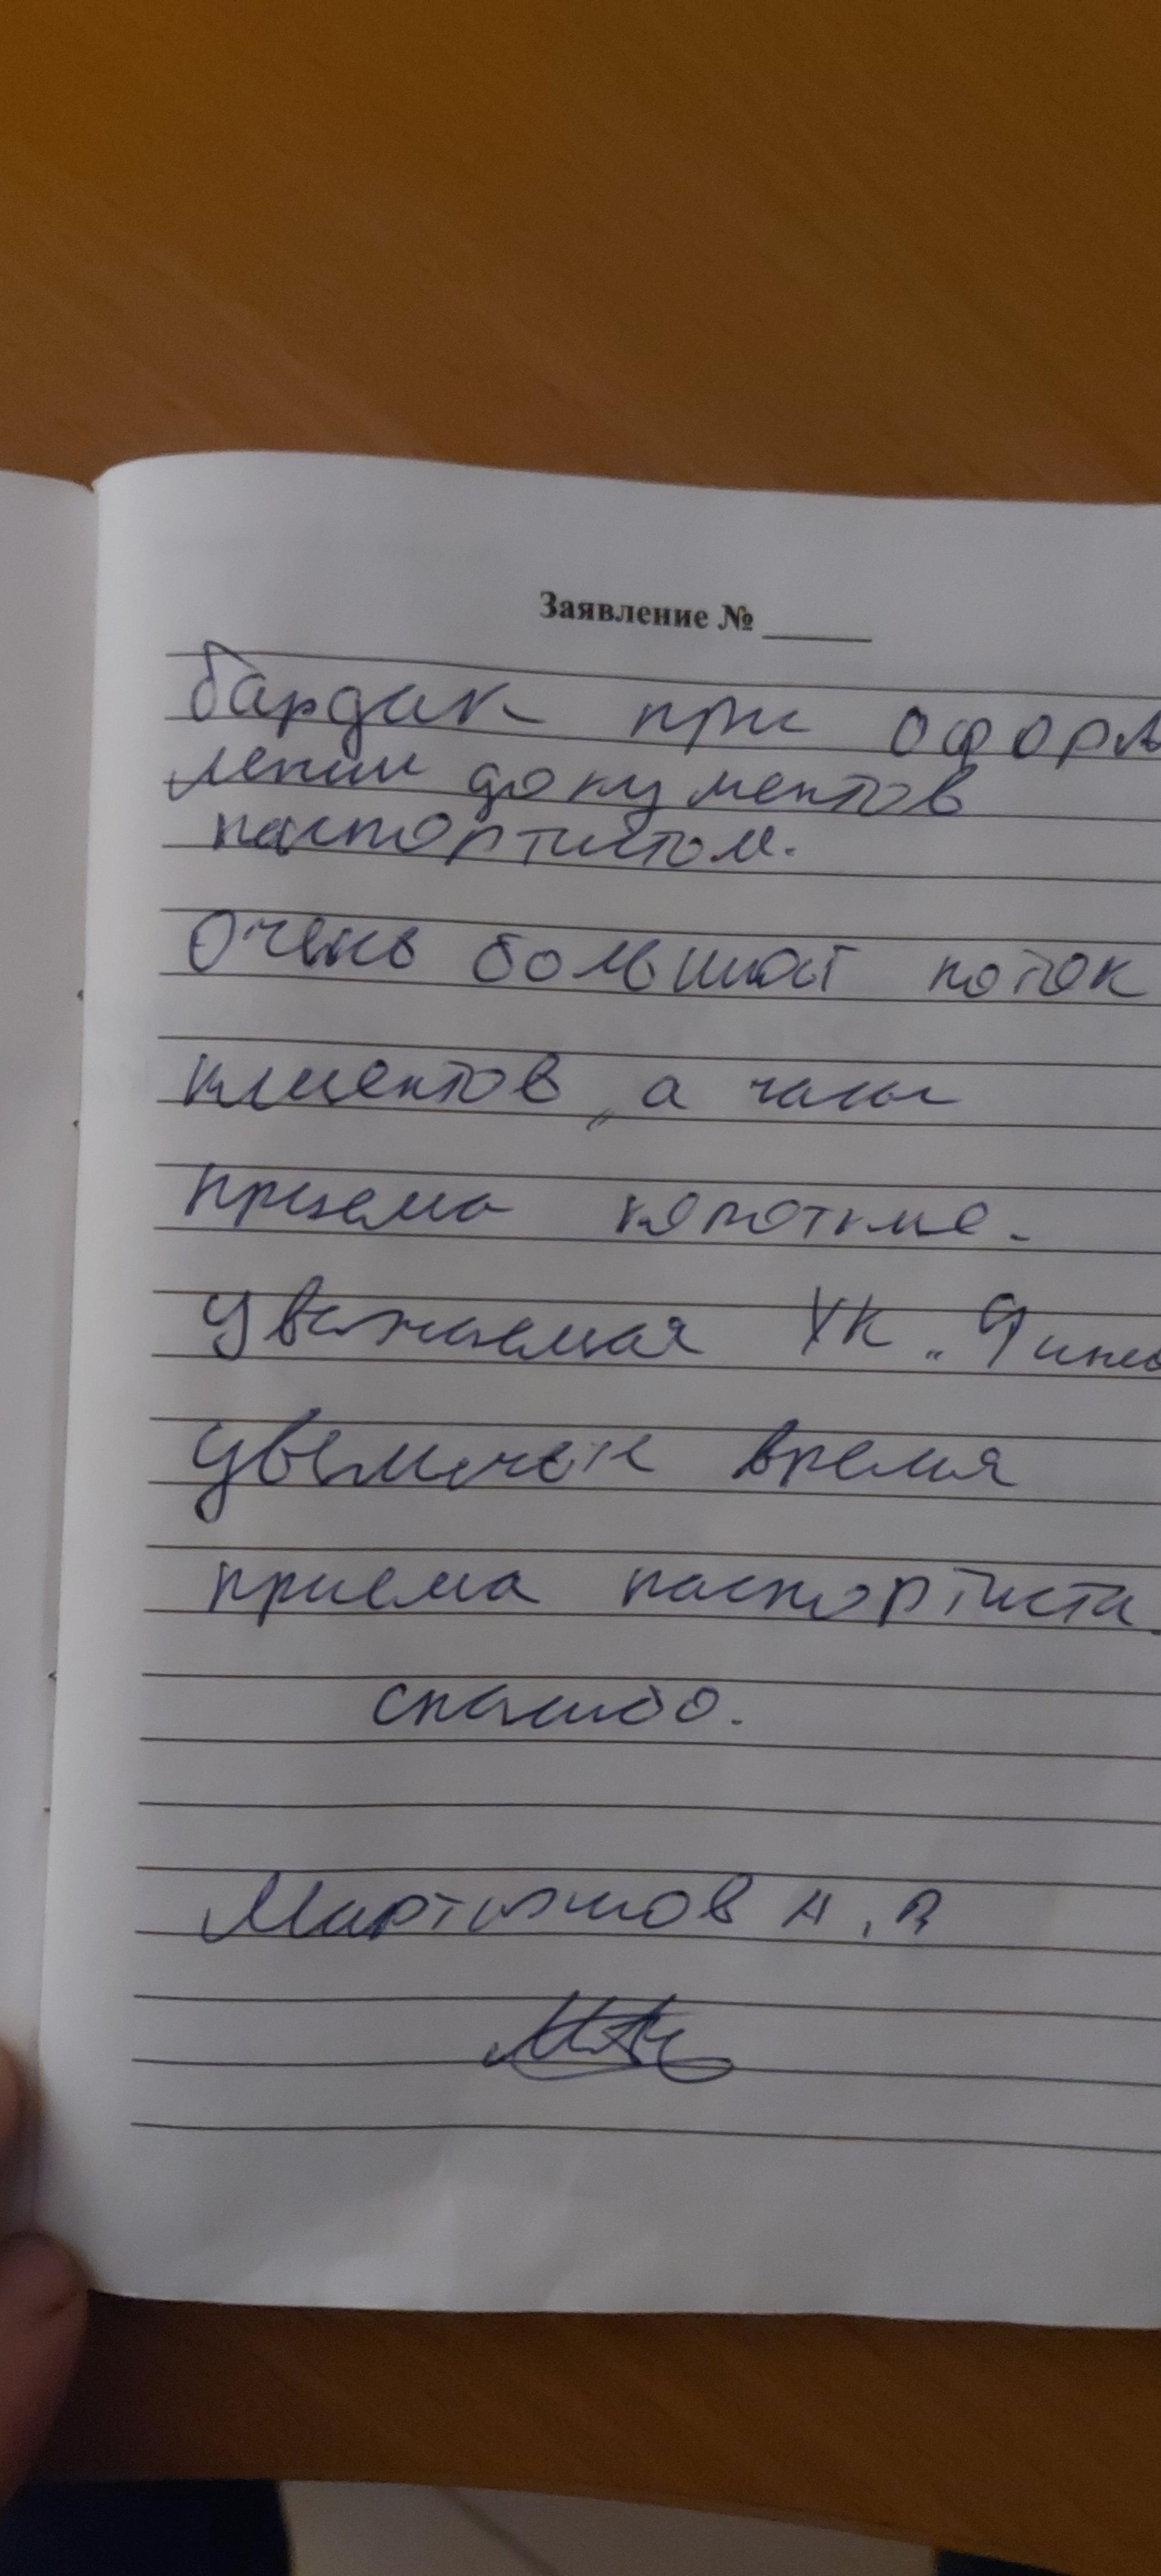 Заявление № ____
бардак при оформ
лении документов
паспортистом.
Очень большой поток
клиентов, а часы
приема короткие.
Уважаемая УК "
увеличьте время
приема паспортиста.
спасибо.
А.В